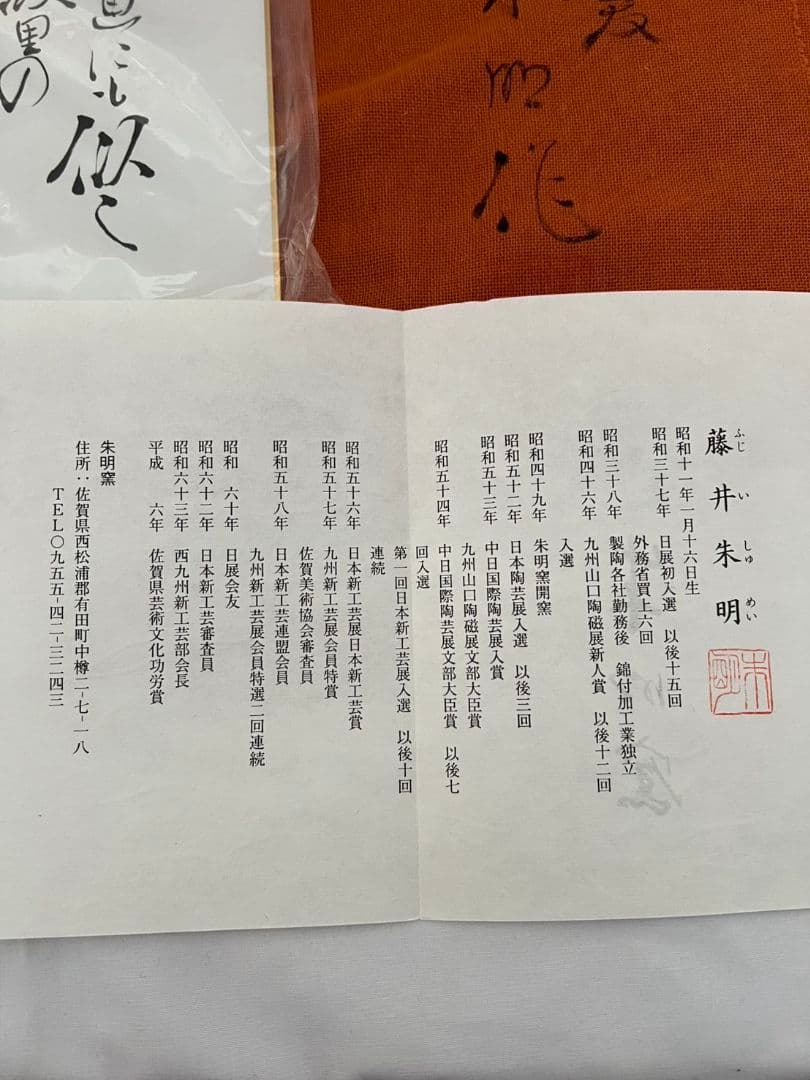 藤井朱明
ふじ い しゅ めい
朱明
昭和十一年一月十六日生
昭和三十七年 日展初入選 以後十五回
外務省買上六回
昭和三十八年 製陶各社勤務後 錦付加工業独立
昭和四十六年 九州山口陶磁展新人賞 以後十二回
入選
昭和四十九年 朱明窯開窯
昭和五十二年 日本陶芸展入選 以後三回
昭和五十三年 中日国際陶芸展入賞
九州山口陶磁展文部大臣賞
昭和五十四年 中日国際陶芸展文部大臣賞 以後七
回入選
第一回日本新工芸展入選 以後十回
連続
昭和五十六年 日本新工芸展日本新工芸賞
昭和五十七年 九州新工芸展会員特賞
佐賀美術協会審査員
昭和五十八年 日本新工芸連盟会員
九州新工芸展会員特選二回連続
昭和 六十年 日展会友
昭和六十二年 日本新工芸審査員
昭和六十三年 西九州新工芸部会長
平成 六年 佐賀県芸術文化功労賞
朱明窯
住所：佐賀県西松浦郡有田町中樽二-七-一八
TEL〇九五五-四二-三二四三
明作
にも似て
里の